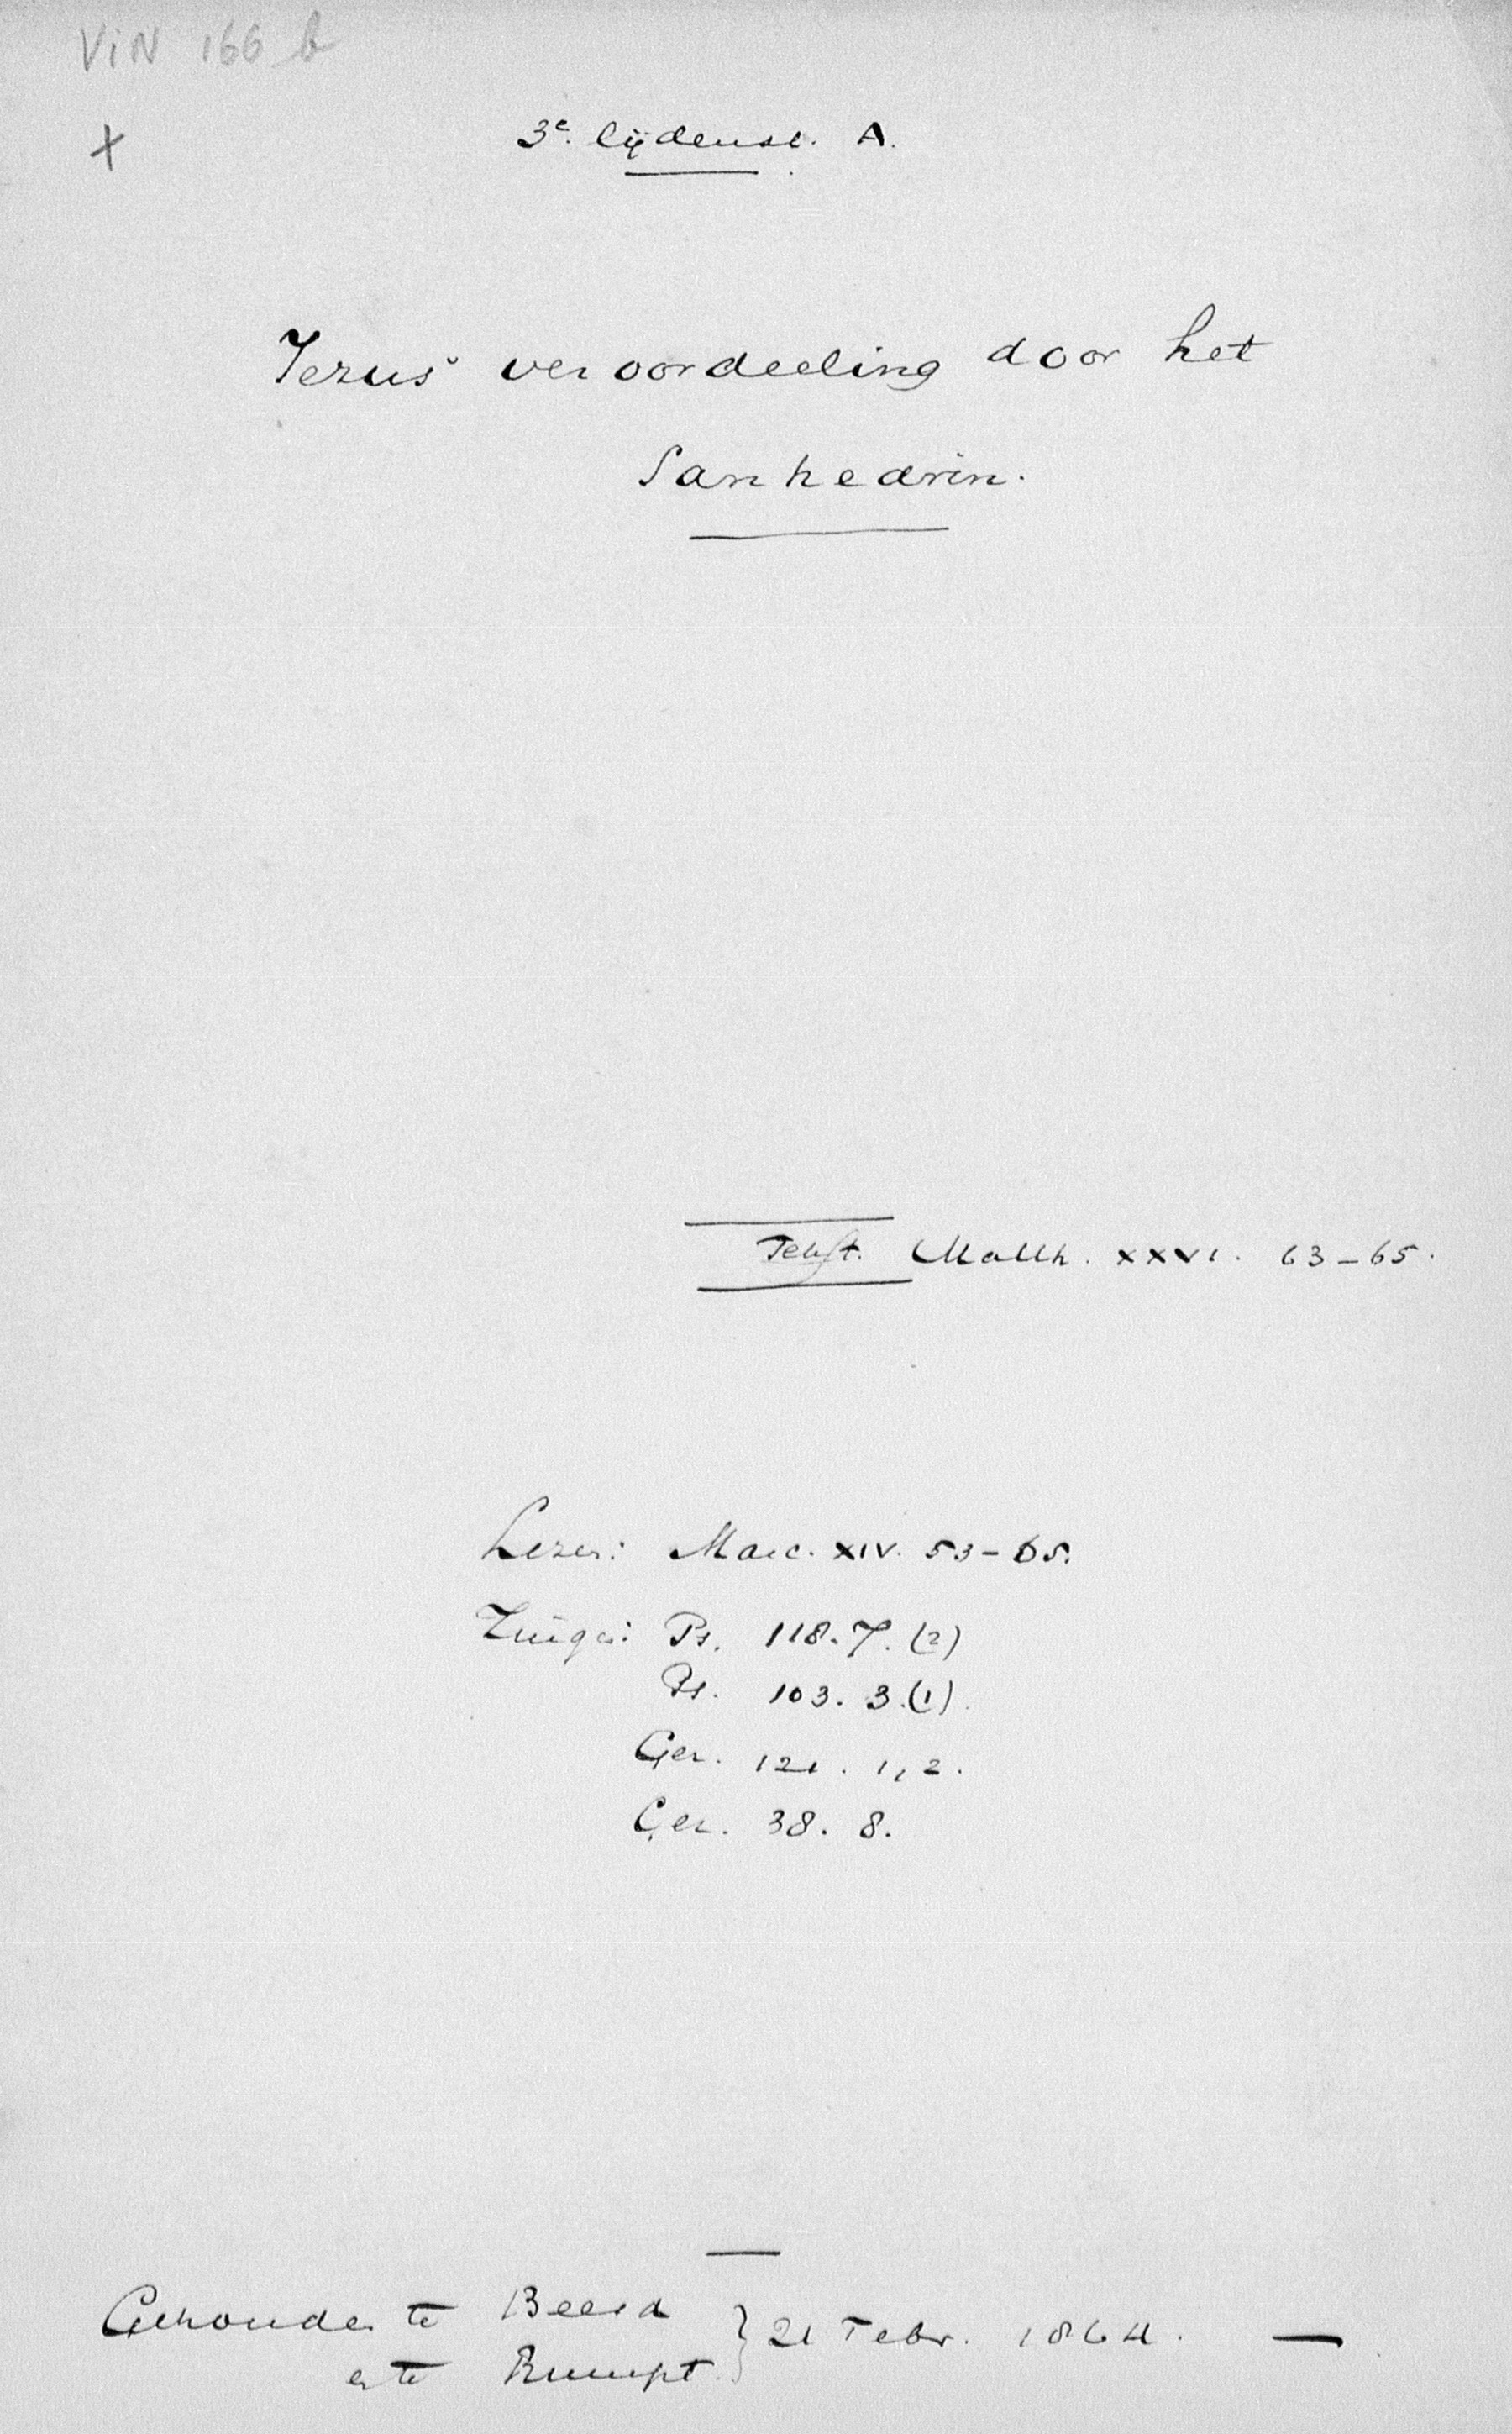 VIN 166 b
X 3e. lijdenst. A.
Jezus' veroordeeling door het
Sanhedrin.
Tekst. Matth. XXVI. 63–65.
Lezen: Marc. XIV. 53–65.
Zingen: Ps. 118. 7. (2)
Ps. 103. 3. (1).
Gez. 121. 1, 2.
Gez. 38. 8.
Gehouden te Beesd
en te Rumpt } 21 Febr. 1864. —